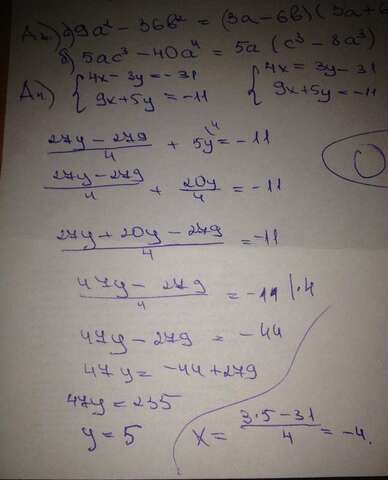 а) 9a² - 36b² = (3a - 6b)(3a + 6
б) 5ac³ - 40a⁴ = 5a (c³ - 8a³)
Д4) { 4x - 3y = -31 { 4x = 3y - 31
9x + 5y = -11 9x + 5y = -11
(27y - 279)/4 + 5y\4 = -11
(27y - 279)/4 + 20y/4 = -11
(27y + 20y - 279)/4 = -11
(47y - 279)/4 = -11 | ·4
47y - 279 = -44
47y = -44 + 279
47y = 235
y = 5 x = (3·5 - 31)/4 = -4.